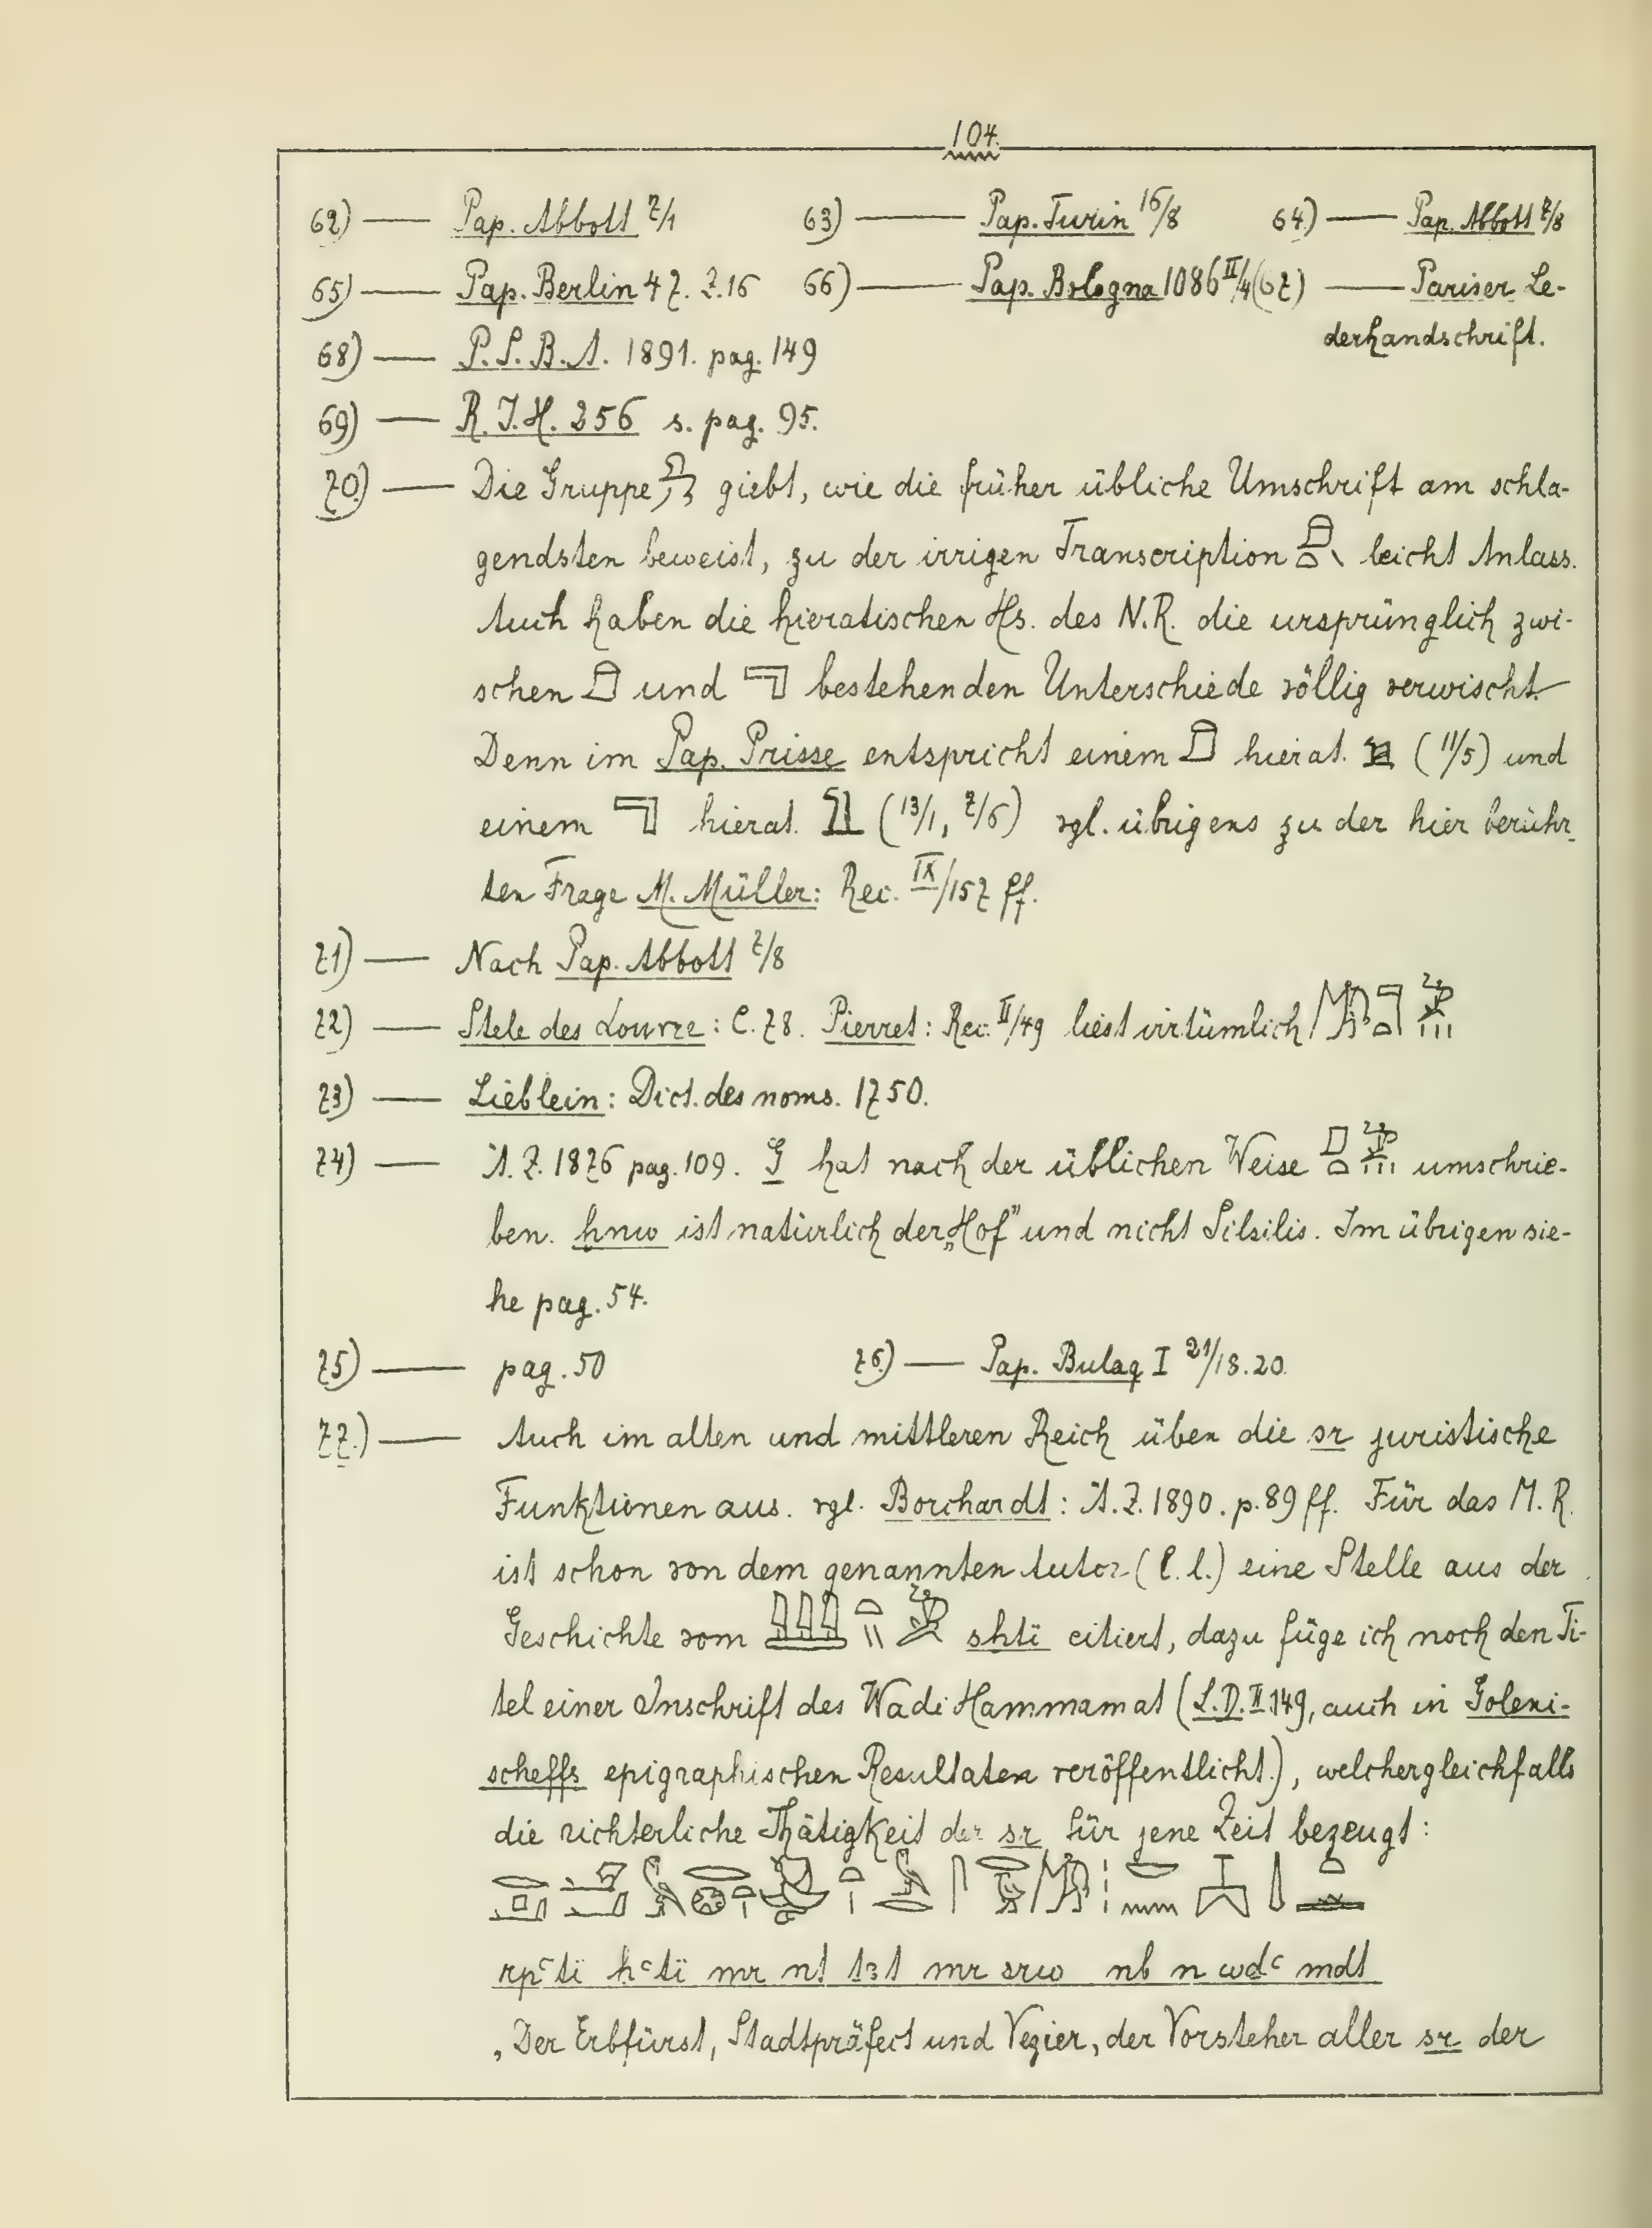 104.
62) — Pap. Abbott 7/1 63) — Pap. Turin 16/8 64) — Pap. Abbott 7/8
65) — Pap. Berlin 47. Z.16 66) — Pap. Bologna 1086 II/4 (67) — Pariser Le-
derhandschrift.
68) — P.S.B.A. 1891. pag. 149
69) — R.I.H. 256 s. pag. 95.
70) — Die Gruppe giebt, wie die früher übliche Umschrift am schla-
gendsten beweist, zu der irrigen Transcription leicht Anlass.
Auch haben die hieratischen Hs. des N.R. die ursprünglich zwi-
schen und bestehenden Unterschiede völlig verwischt.
Denn im Pap. Prisse entspricht einem hierat. (11/5) und
einem hierat. (13/1, 7/6) vgl. übrigens zu der hier berühr-
ten Frage M. Müller: Rec. IX/157 ff.
71) — Nach Pap. Abbott 7/8
72) — Stele des Louvre: C.78. Pierret: Rec. II/49 liest irrtümlich
73) — Lieblein: Dict. des noms. 1750.
74) — Ä.Z. 1876 pag. 109. G hat nach der üblichen Weise umschrie-
ben. hnw ist natürlich der „Hof" und nicht Silsilis. Im übrigen sie-
he pag. 54.
75) — pag. 50 76) — Pap. Bulaq I 21/18.20.
77.) — Auch im alten und mittleren Reich üben die sr juristische
Funktionen aus. vgl. Borchardt: Ä.Z. 1890. p. 89 ff. Für das M.R.
ist schon von dem genannten Autor (l.l.) eine Stelle aus der
Geschichte vom shti citiert, dazu füge ich noch den Ti-
tel einer Inschrift des Wadi Hammamat (L.D. II 149, auch in Goleni-
scheffs epigraphischen Resultaten veröffentlicht.), welcher gleichfalls
die richterliche Thätigkeit der sr für jene Zeit bezeugt:
rpꜥti hꜥti mr nt t3t mr srw nb n wdꜥ mdt
„Der Erbfürst, Stadtpräfect und Vezier, der Vorsteher aller sr der